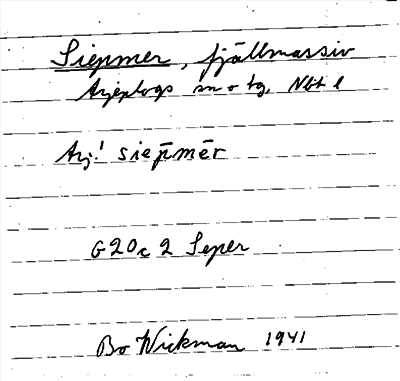 Siepmer, fjällmassiv
Arjeplogs sn o tg, Nbt l
Arj! siep̄mēr
G20c 2 Seper
Bo Wickman 1941